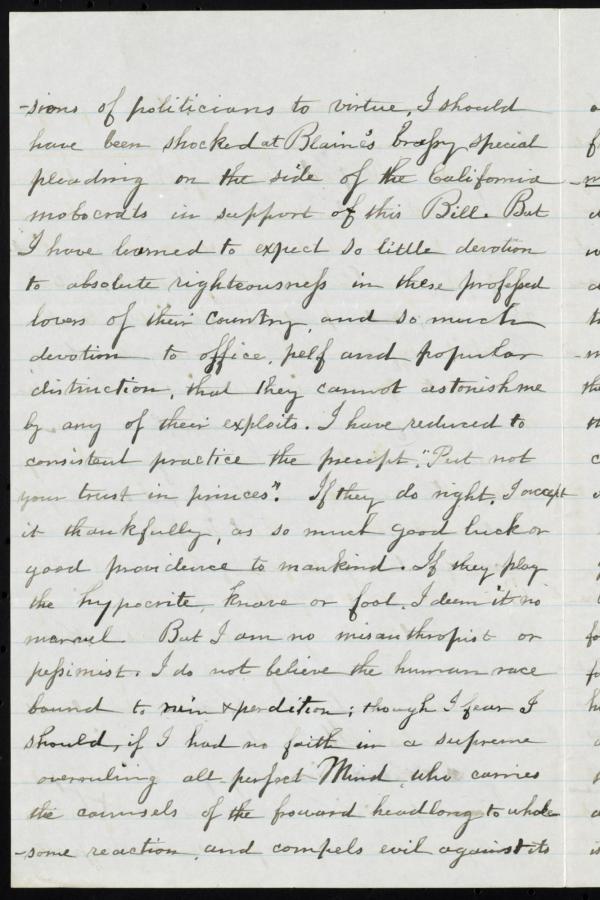 -sions of politicians to virtue, I should
have been shocked at Blaine's brassy special
pleading on the side of the California
mobocrats in support of this Bill. But
I have learned to expect so little devotion
to absolute righteousness in these professed
lovers of their country, and so much
devotion to office, pelf and popular
distinction, that they cannot astonish me
by any of their exploits. I have reduced to
consistent practice the precept, "Put not
your trust in princes". If they do right, I accept
it thankfully, as so much good luck or
good providence to mankind. If they play
the hypocrite, knave or fool, I deem it no
marvel. But I am no misanthropist or
pessimist. I do not believe the human race
bound to ruin & perdition; though I fear I
should, if I had no faith in a supreme
overruling all-perfect Mind, who carries
the counsels of the froward headlong to whole-
-some reaction, and compels evil against its